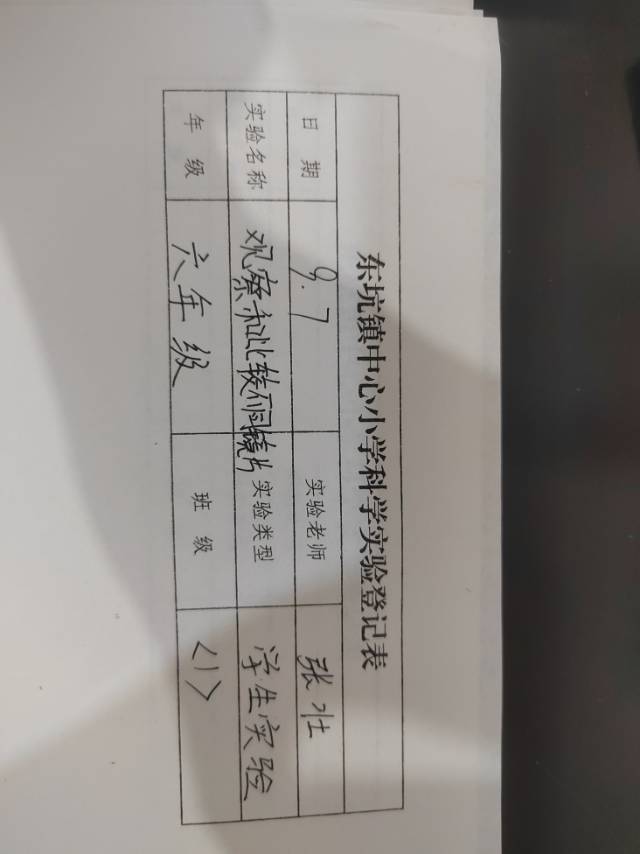 东坑镇中心小学科学实验登记表
日 期 9.7 实验老师 张壮
实验名称 观察和比较不同镜片 实验类型 学生实验
年 级 六年级 班 级 <1>